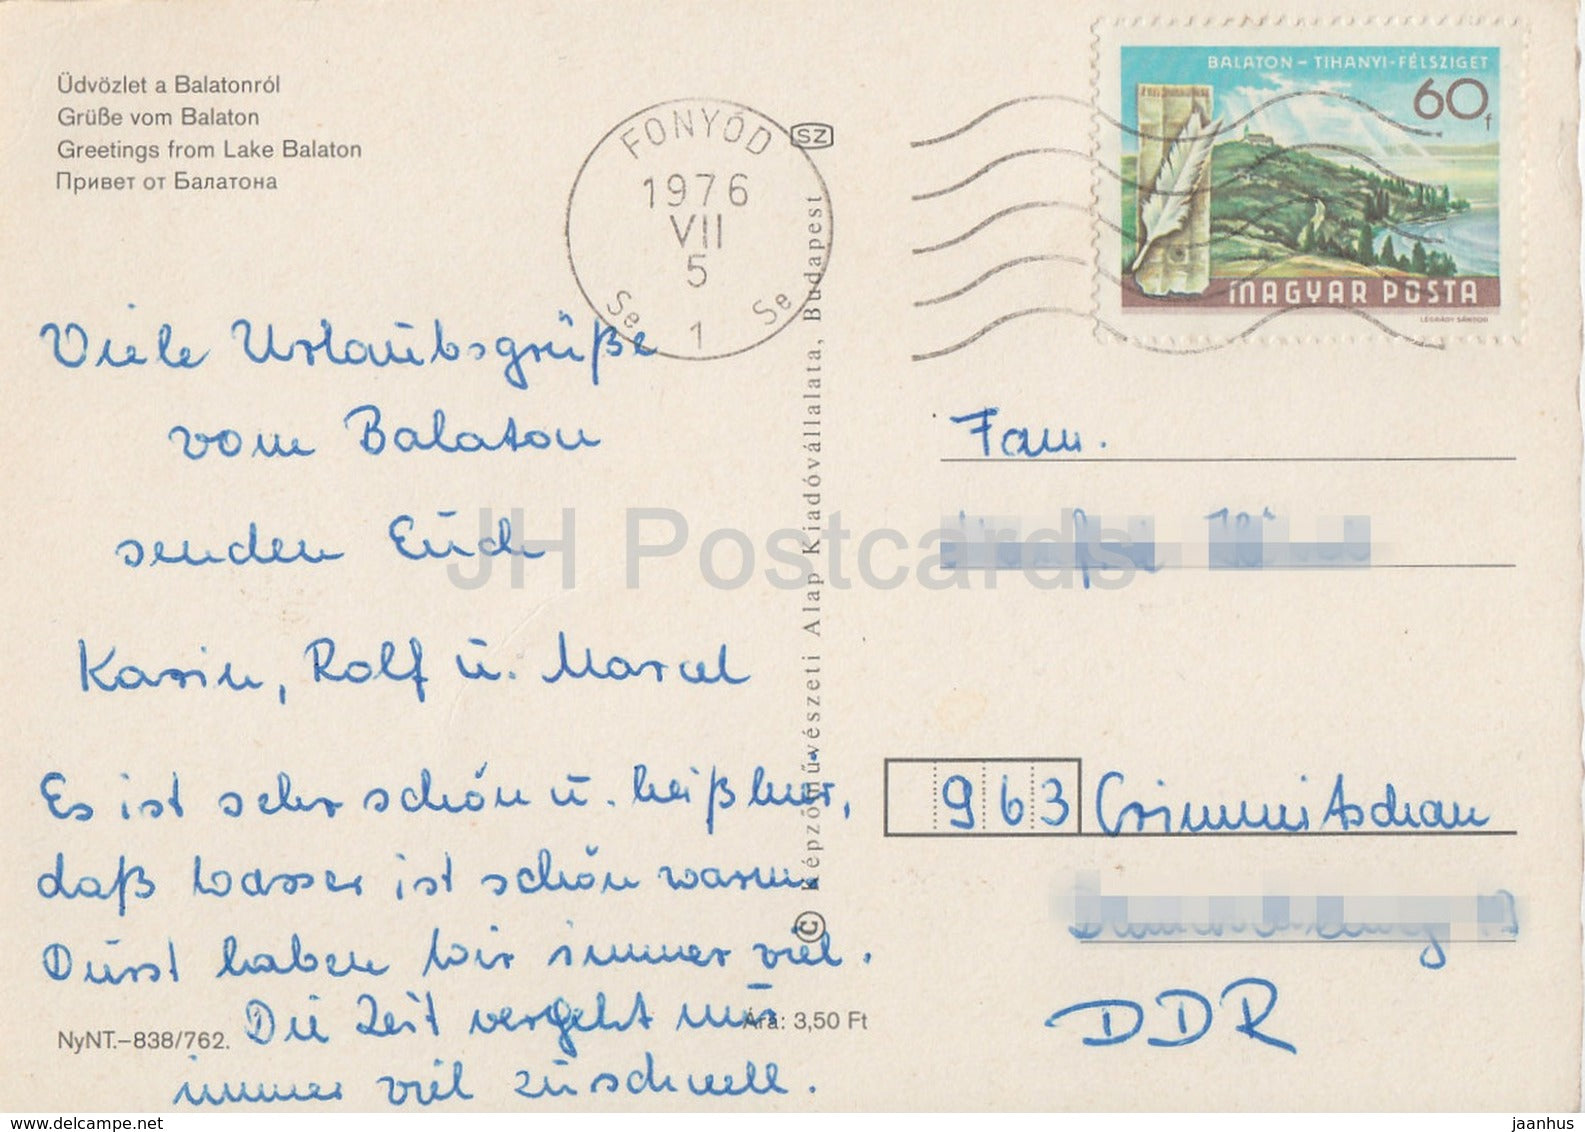 Üdvözlet a Balatonról
Grüße vom Balaton
Greetings from Lake Balaton
Привет от Балатона
FONYÓD
1976
VII
5
Se 1 Se
SZ
BALATON – TIHANYI-FÉLSZIGET
60f
MAGYAR POSTA
LÉGRÁDY SÁNDOR
Viele Urlaubsgrüße
vom Balaton
senden Euch
Karin, Rolf u. Marcel
Es ist sehr schön u. heiß hier,
daß Wasser ist schön warm.
Durst haben wir immer viel.
Die Zeit vergeht nur
immer viel zu schnell.
NyNT.–838/762.
Ára: 3,50 Ft
© Képzőművészeti Alap Kiadóvállalata, Budapest
Fam.
963 Crimmitschau
DDR
JH Postcards
www.delcampe.net
jaanhus